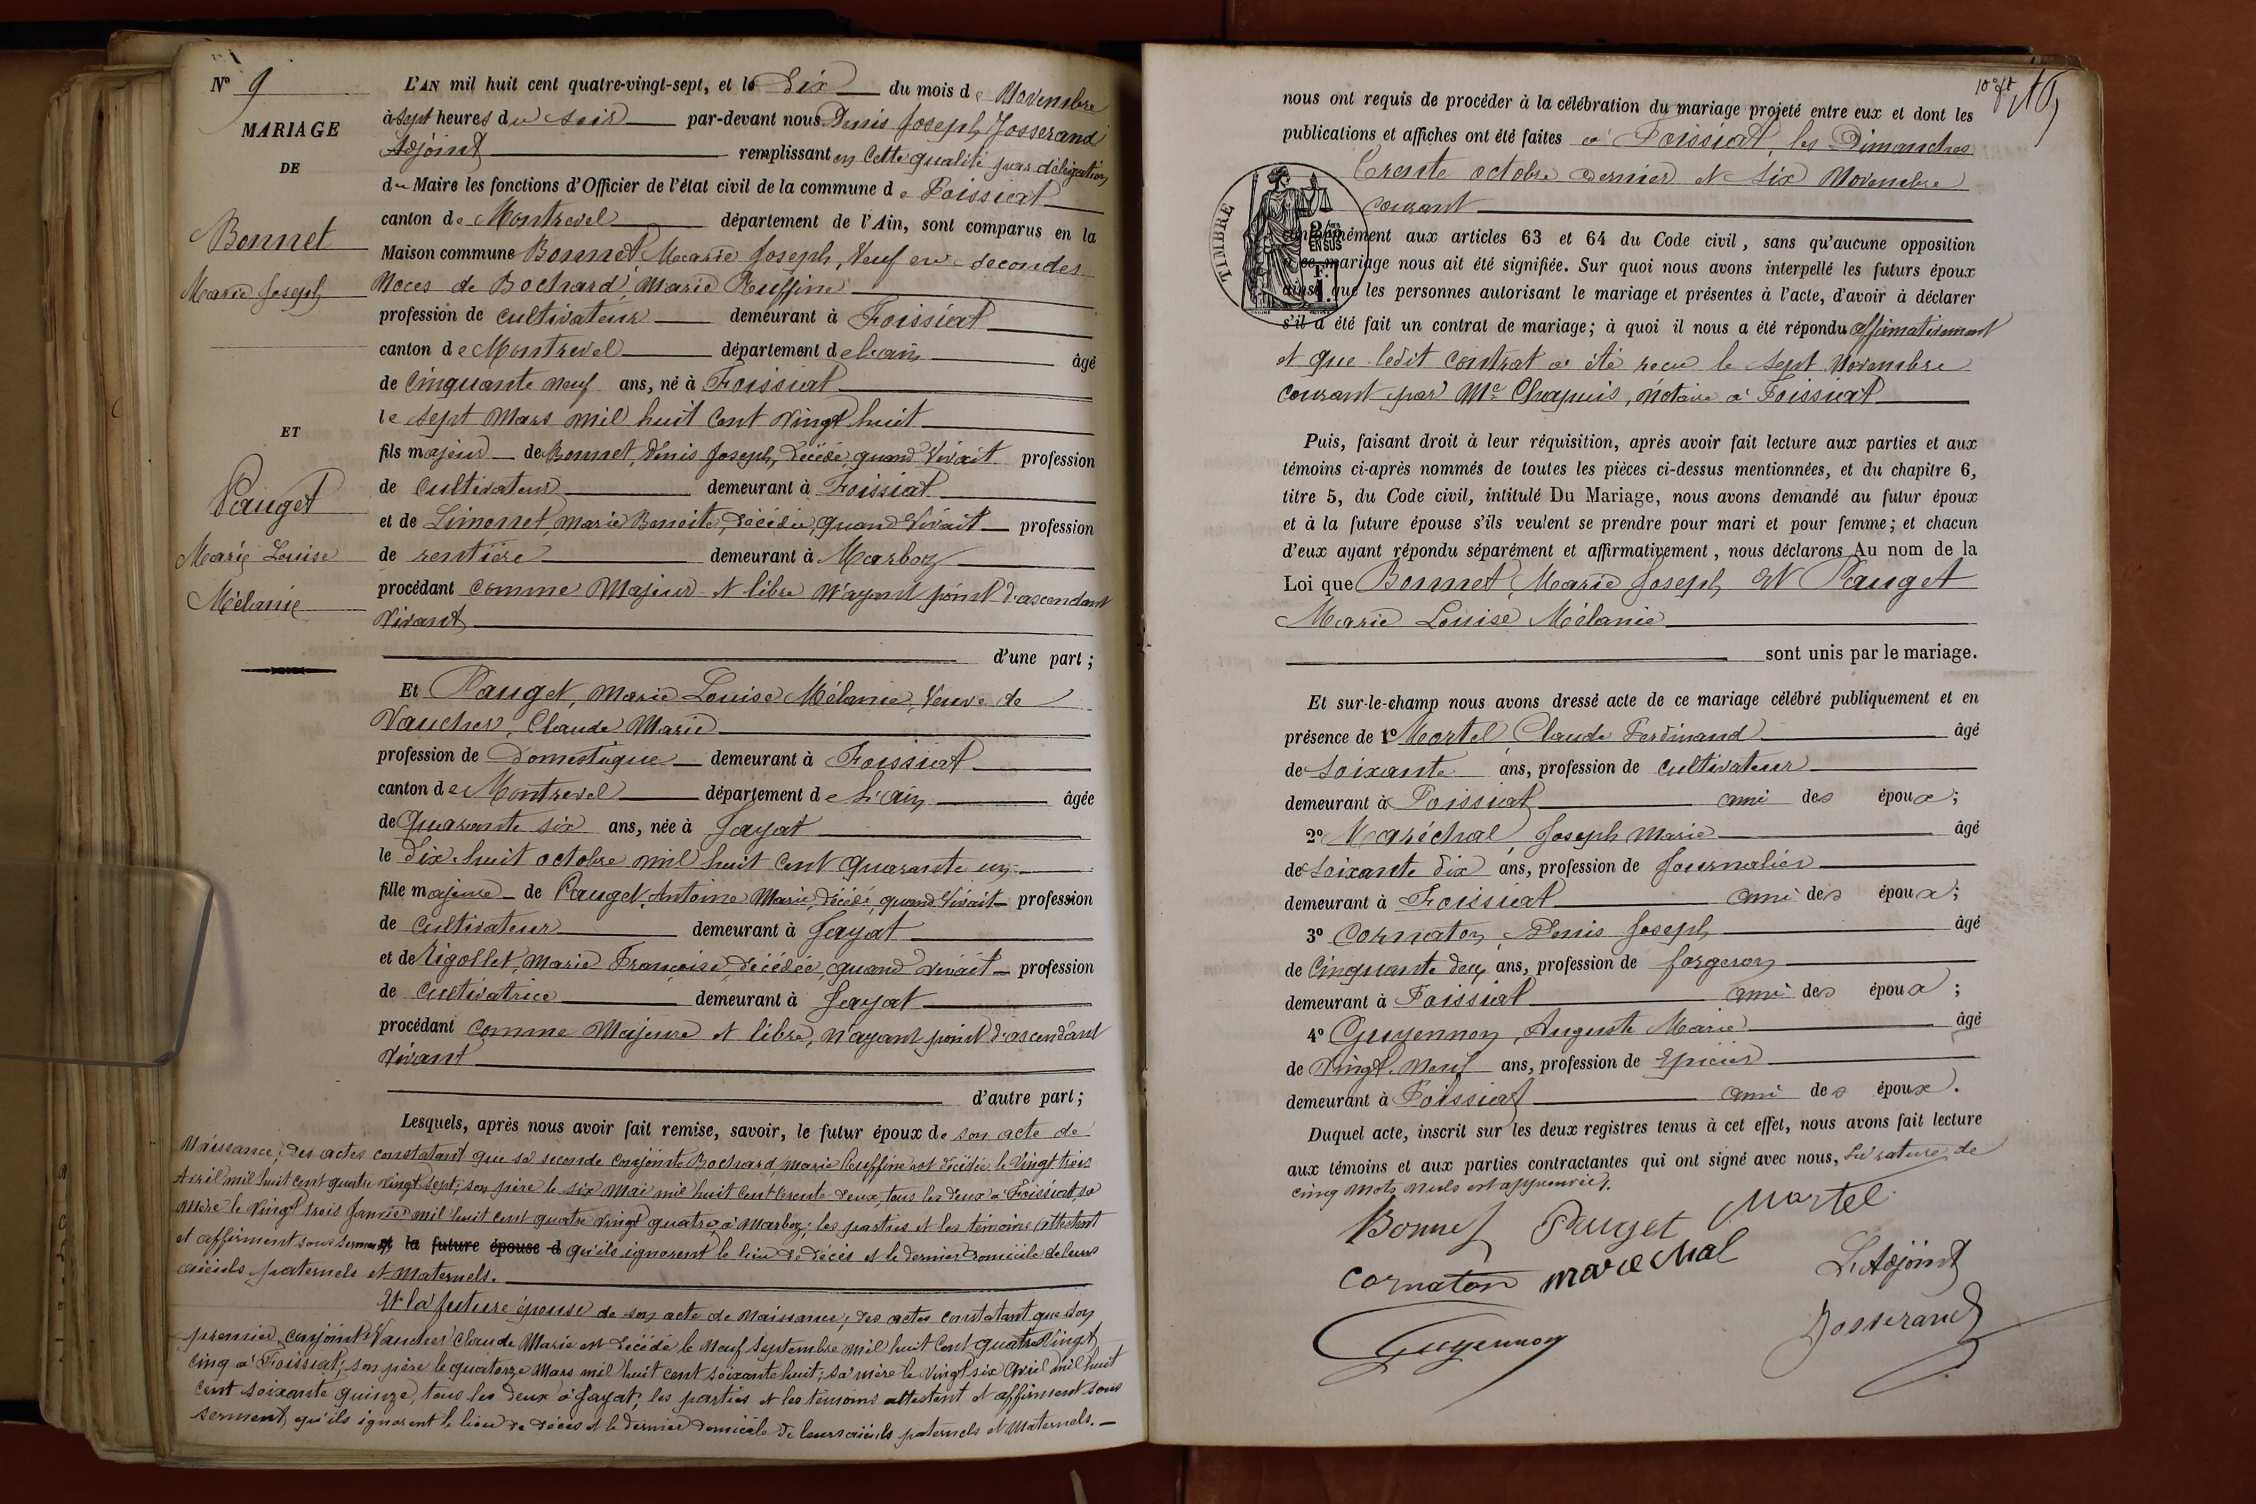 N° 9
MARIAGE
DE
Bonnet
Marie Joseph
ET
Pauget
Marie Louise
Mélanie
L'AN mil huit cent quatre-vingt-sept, et le Dix du mois de Novembre
à sept heures du soir par-devant nous Denis Joseph Josserand
Adjoint remplissant en cette qualité par délégation
du Maire les fonctions d'Officier de l'état civil de la commune de Foissiat
canton de Montrevel département de l'Ain, sont comparus en la
Maison commune Bonnet Marie Joseph, Veuf en secondes
Noces de Bochard Marie Reuffine
profession de cultivateur demeurant à Foissiat
canton de Montrevel département de l'ain âgé
de Cinquante neuf ans, né à Foissiat
le sept Mars mil huit Cent Vingt huit
fils majeur de Bonnet, Denis Joseph, Décédé, quand Vivait profession
de Cultivateur demeurant à Foissiat
et de Limonet, Marie Benoite, décédée, quand Vivait profession
de rentière demeurant à Marboz
procédant comme Majeur et libre N'ayant point d'ascendant
Vivant
d'une part ;
Et Pauget, Marie Louise Mélanie, Veuve de
Vaucher, Claude Marie
profession de Domestique demeurant à Foissiat
canton de Montrevel département de L'ain âgée
de Quarante six ans, née à Jayat
le Dix-huit octobre mil huit cent quarante un
fille majeure de Pauget, Antoine Marie, Décédé, quand Vivait profession
de Cultivateur demeurant à Jayat
et de Rigollet, Marie Françoise, Décédée, quand vivait profession
de Cultivatrice demeurant à Jayat
procédant comme Majeure et libre, n'ayant point d'ascendant
Vivant
d'autre part ;
Lesquels, après nous avoir fait remise, savoir, le futur époux de son acte de
Naissance; des actes constatant que sa seconde conjointe Bochard Marie Reuffine est décédée le Vingt trois
Avril mil huit cent quatre vingt sept; son père le six Mai mil huit Cent trente deux, tous les deux à Foissiat, sa
Mère le Vingt trois Janvier mil huit cent quatre vingt quatre, à Marboz; les parties et les témoins attestent
et affirment sous serment et la future épouse d qu'ils ignorent le lieu de décès et le dernier domicile de leurs
aieuls paternels et Maternels.
Et la future épouse de son acte de Naissance; des actes constatant que son
premier conjoint Vaucher Claude Marie est décédé le Neuf Septembre mil huit Cent quatre Vingt
Cinq à Foissiat; son père le quatorze Mars mil huit cent soixante huit; sa mère le Vingt six Avril mil huit
Cent soixante quinze, tous les deux à Jayat; les parties et les témoins attestent et affirment sous
serment qu'ils ignorent le lieu de décès et le dernier domicile de leurs aieuls paternels et Maternels.
nous ont requis de procéder à la célébration du mariage projeté entre eux et dont les
publications et affiches ont été faites à Foissiat, les Dimanches
trente octobre dernier et six Novembre
courant
TIMBRE
2/10mes
EN SUS
F.
1.
conformément aux articles 63 et 64 du Code civil, sans qu'aucune opposition
à ce mariage nous ait été signifiée. Sur quoi nous avons interpellé les futurs époux
ainsi que les personnes autorisant le mariage et présentes à l'acte, d'avoir à déclarer
s'il a été fait un contrat de mariage; à quoi il nous a été répondu affirmativement
et que ledit contrat a été reçu le sept Novembre
courant par Me Chapuis, notaire à Foissiat
Puis, faisant droit à leur réquisition, après avoir fait lecture aux parties et aux
témoins ci-après nommés de toutes les pièces ci-dessus mentionnées, et du chapitre 6,
titre 5, du Code civil, intitulé Du Mariage, nous avons demandé au futur époux
et à la future épouse s'ils veulent se prendre pour mari et pour femme; et chacun
d'eux ayant répondu séparément et affirmativement, nous déclarons Au nom de la
Loi que Bonnet, Marie Joseph et Pauget
Marie Louise Mélanie
sont unis par le mariage.
Et sur-le-champ nous avons dressé acte de ce mariage célébré publiquement et en
présence de 1° Mortel, Claude Ferdinand âgé
de Soixante ans, profession de cultivateur
demeurant à Foissiat ami des époux;
2° Maréchal, Joseph Marie âgé
de Soixante dix ans, profession de Journalier
demeurant à Foissiat ami des époux;
3° Cornaton, Denis Joseph âgé
de Cinquante deux ans, profession de forgeron
demeurant à Foissiat ami des époux;
4° Guyennon, Auguste Marie âgé
de Vingt-Neuf ans, profession de Epicier
demeurant à Foissiat ami des époux.
Duquel acte, inscrit sur les deux registres tenus à cet effet, nous avons fait lecture
aux témoins et aux parties contractantes qui ont signé avec nous, La rature de
cinq mots nuls est approuvée.
Bonnet Pauget Mortel
Cornaton marechal L'Adjoint
Guyennon Josserand